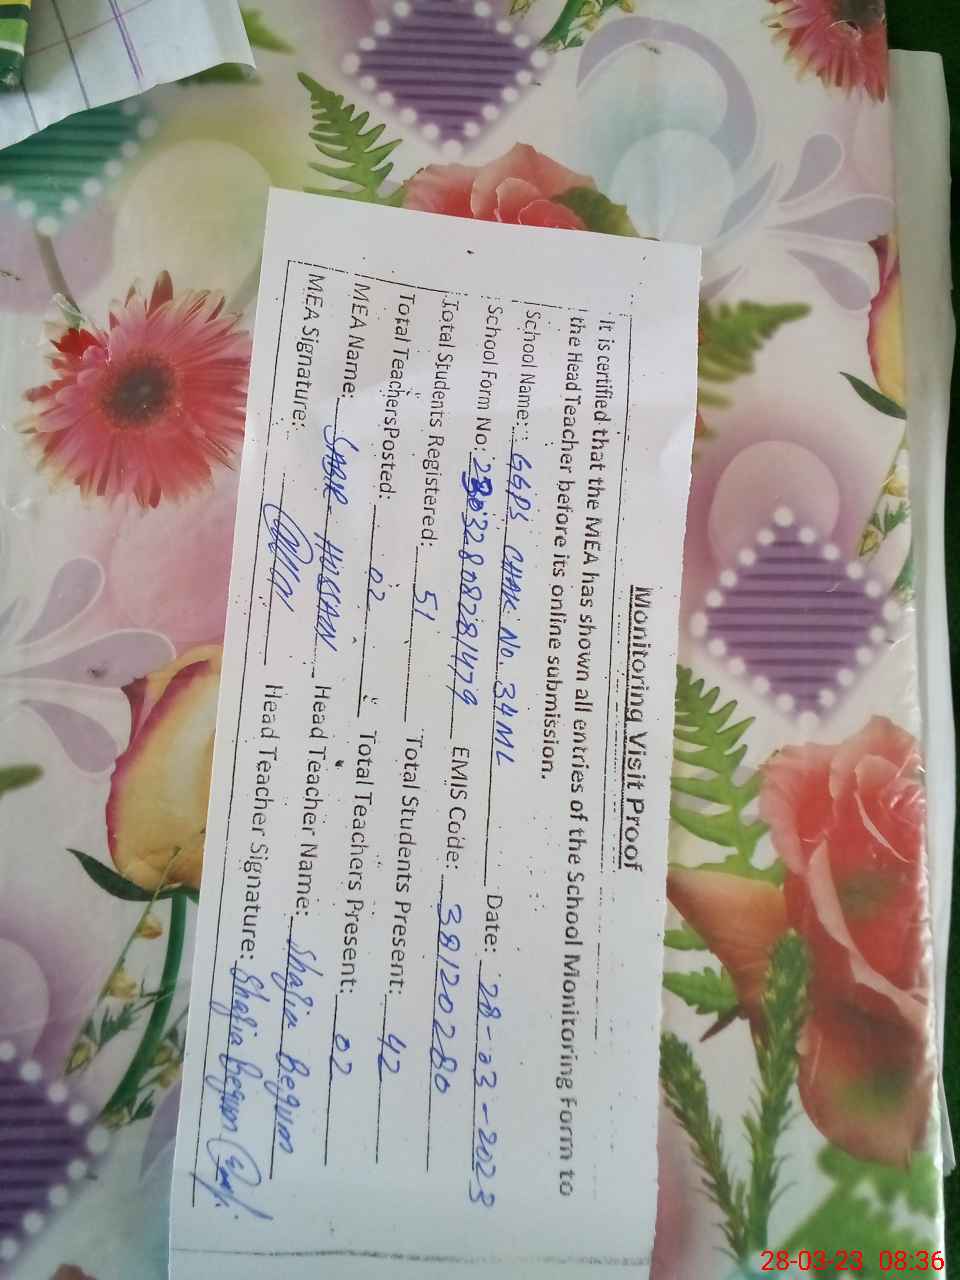 Monitoring Visit Proof
It is certified that the MEA has shown all entries of the School Monitoring Form to
the Head Teacher before its online submission.
School Name: GGPS CHAK No. 34 ML Date: 28-03-2023
School Form No: EMIS Code: 38120280
Total Students Registered: 51 Total Students Present: 42
Total Teachers Posted: 02 Total Teachers Present: 02
MEA Name: SABIR HUSSAIN Head Teacher Name: Shafia Begum
MEA Signature: Head Teacher Signature: Shafia Begum
28-03-23 08:36